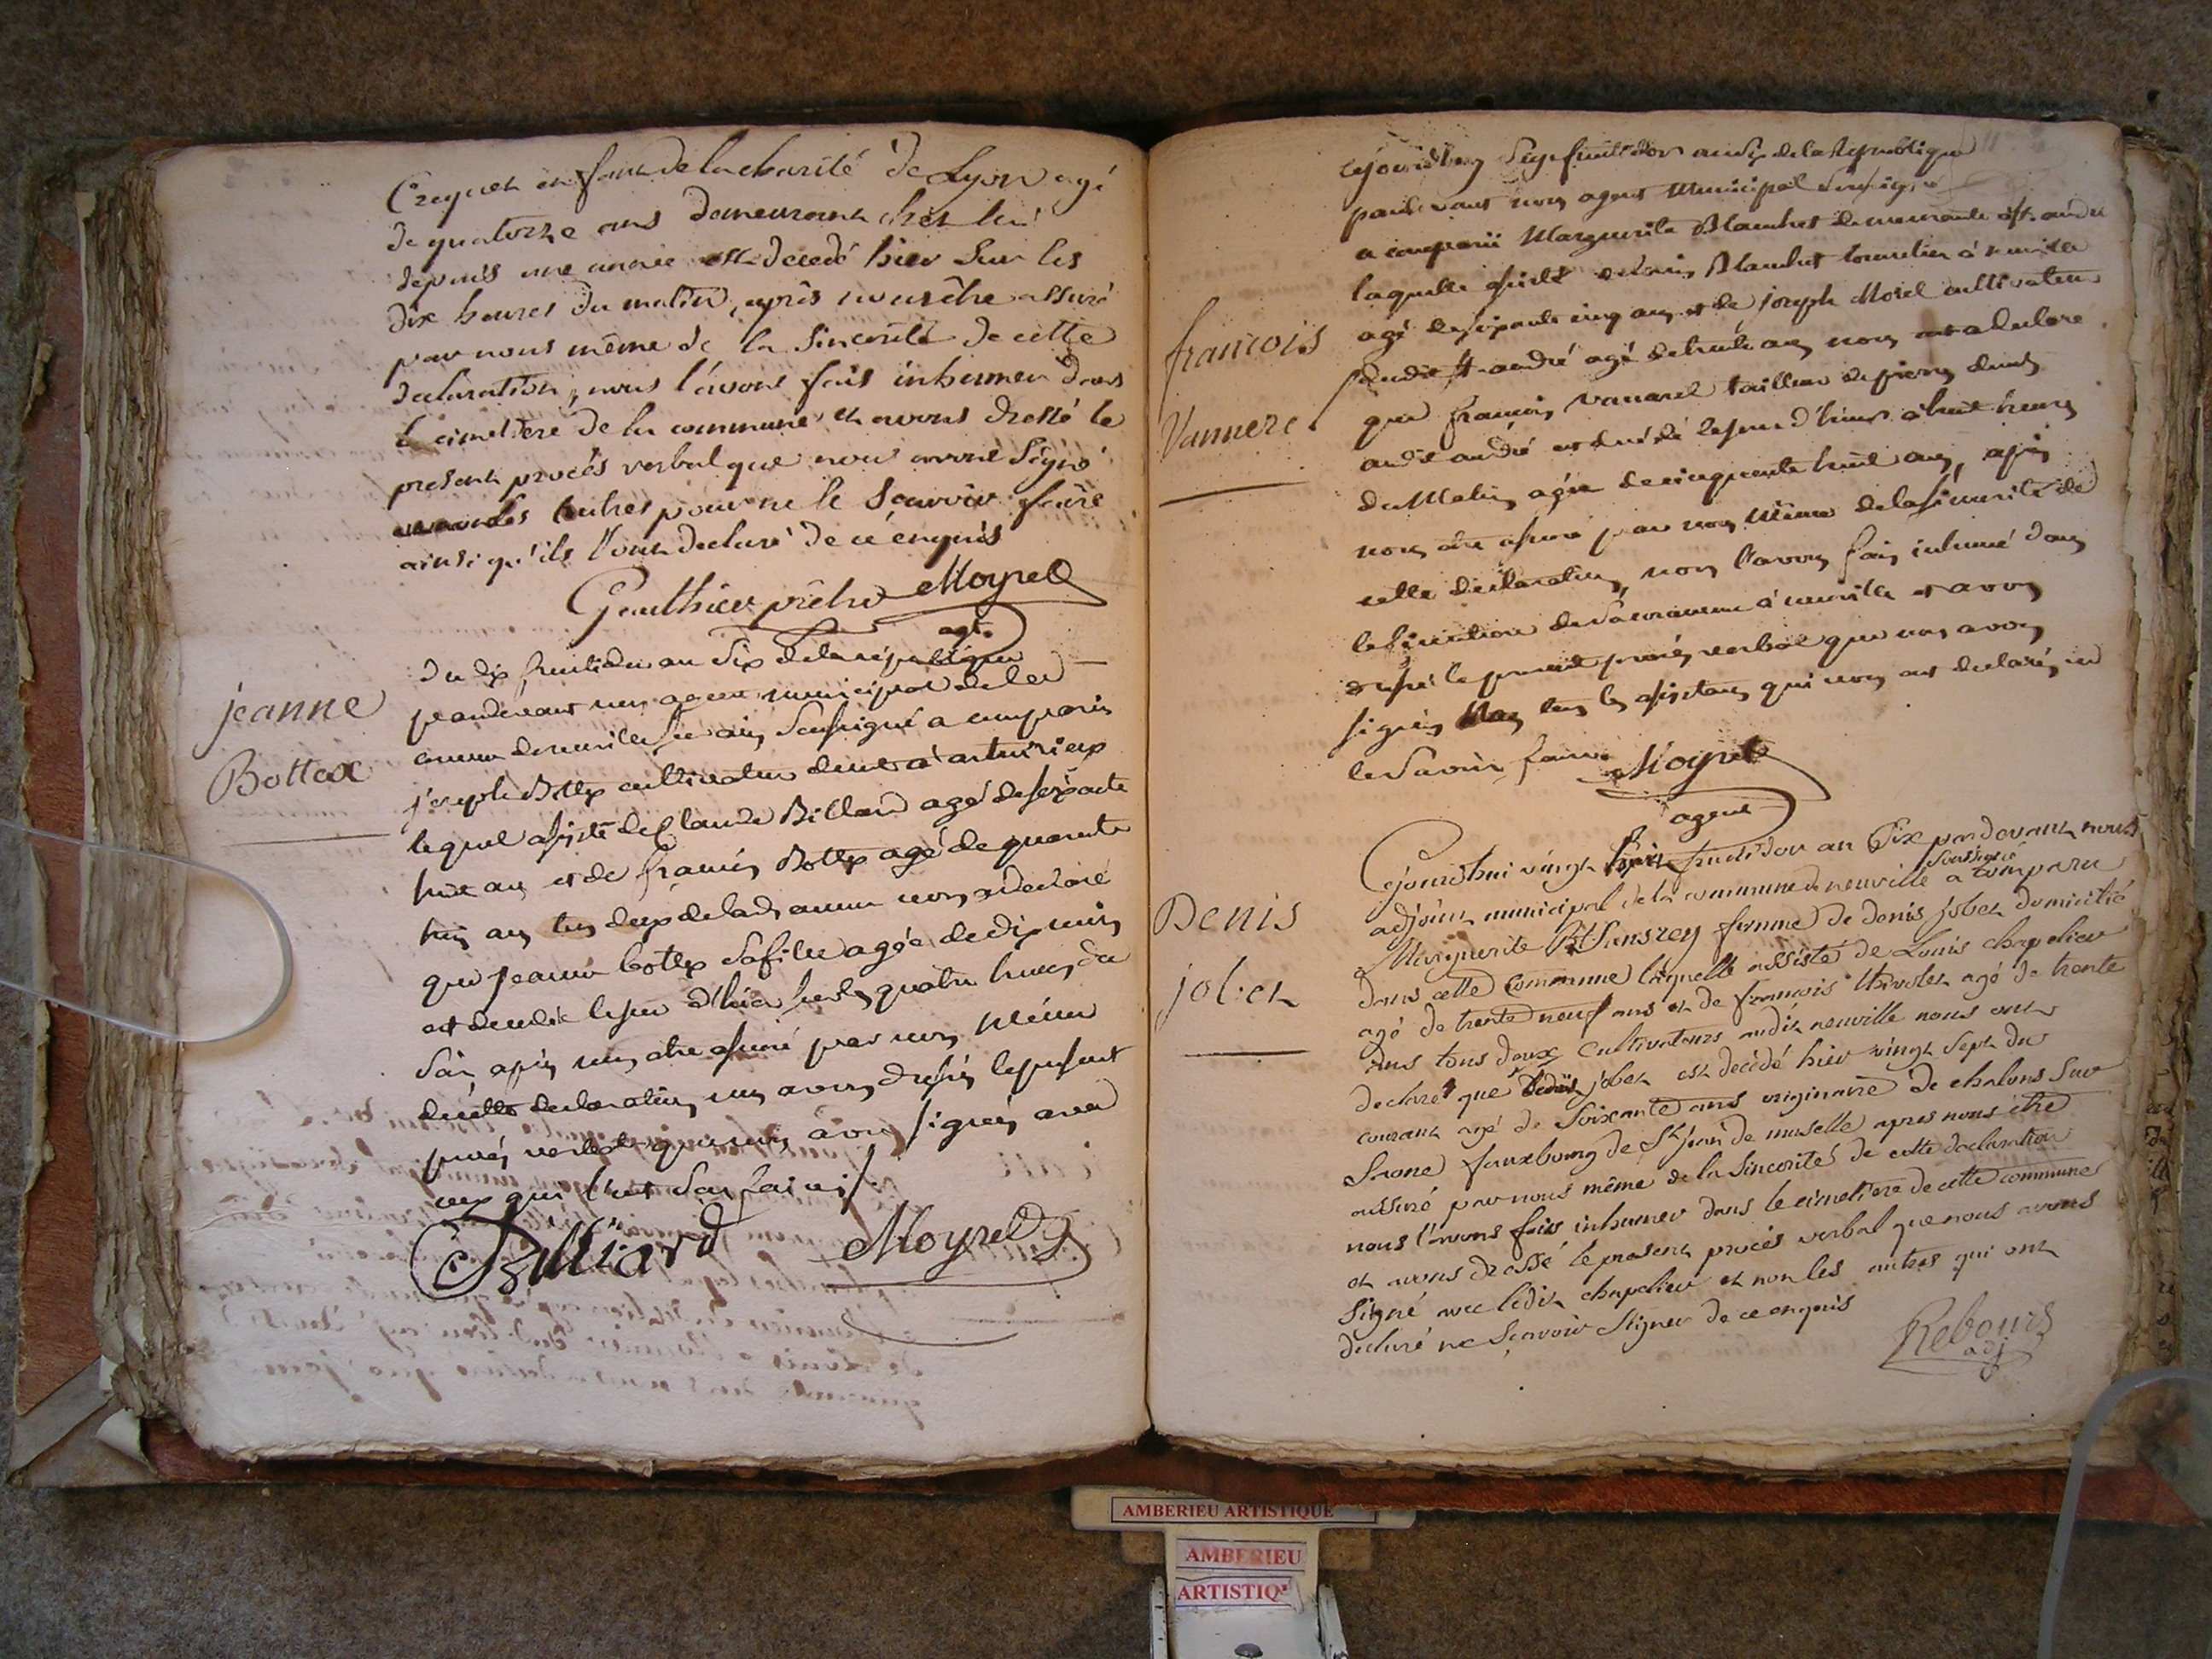 Craquet enfant de la charité de Lyon agé
de quatorze ans demeurant chez lui
depuis une année est decedé hier sur les
dix heures du matin, après nous être assuré
par nous même de la sincerité de cette
declaration, nous l'avons fait inhumer dans
le cimetiere de la commune et avons dressé le
present procès verbal que nous avons signé
autres pour ne le scavoir faire
ainsi qu'ils l'ont declaré de ce enquis
Gauthier prêtre Moyret
agt.
jeanne
Bottex
Du dix fructidor an six de la republique
pardevant nous agent municipal de la
comune de neuville sur ain soussigné a comparu
joseph Bottex cultivateur demt à
lequel assisté de Claude Billard agé de soixante
huit ans et de francois Bottex agé de quarante
huit ans tous deux de lad. comune nous a declaré
que jeanne bottex sa fille agée de dix mois
est decedée le jour d'hier sur les quatre heures du
soir, après nous etre assuré par nous même
de cette declaration, nous avons dressés le present
procès verbal que nous avons signés avec
ceux qui l'ont sçu faire
Billiard Moyret
francois
Vannere
cejourdhuy sept fructidor an six de la Republique
pardevant nous agent Municipal soussigné
a comparu Marguerite Blanchet demeurante à st. andré
laquelle assisté de Louis Blanchet tonnelier à neuville
agé de soixante cinq ans et de joseph Morel cultivateur
audit st andré agé de trente ans nous ont a declare
que francois vanarel tailleur de pierres demt
audit st andré est decédé le jour d'hier à huit heures
du Matin agée de cinquante huit ans, après
nous etre assuré par nous Même de la sincerité de
cette declaration, nous l'avons fais inhumé dans
le cimetiere de sa commune à neuville et avons
dressé le present procès verbal que nous avons
signés tous les assistans qui nous ont declarés ne
le savoir faire Moyret
agent
Denis
jobet
Cejourdhui vingt huit fructidor an Six pardevant nous
adjoint municipal de la commune de neuville soussigné a comparu
Marguerite femme de denis jobet domicilié
dans cette Commune laquelle assisté de Louis chapelier
agé de trente neuf ans et de francois thivolet agé de trente
ans tous deux cultivateurs audit neuville nous ont
declaré que denis jobet est decédé hier vingt sept du
courant agé de Soixante ans originaire de chalons Sur
Saone fauxbourg de St jean de maselle apres nous être
assuré par nous même de la Sincerité de cette declaration
nous l'avons fais inhumer dans le cimetiere de cette commune
et avons dressé le present procès verbal que nous avons
Signé avec ledit chapelier et non les autres qui ont
declaré ne Sçavoir Signer de ce enquis
Rebouis
adj
AMBERIEU ARTISTIQUE
AMBERIEU
ARTISTIQ